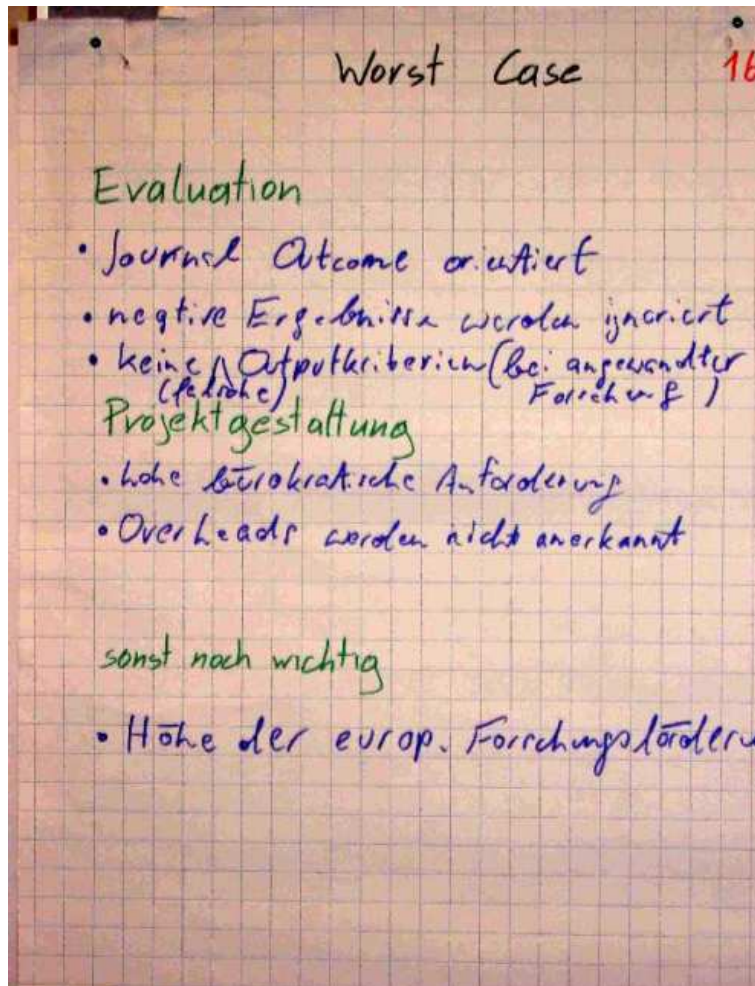 Worst Case 16
Evaluation
• Journal Outcome orientiert
• negtive Ergebnisse werden ignoriert
• keine Outputkriterien (bei angewandter
(falsche) Forschung)
Projektgestaltung
• hohe bürokratische Anforderung
• Overheads werden nicht anerkannt
sonst noch wichtig
• Höhe der europ. Forschungsförderu